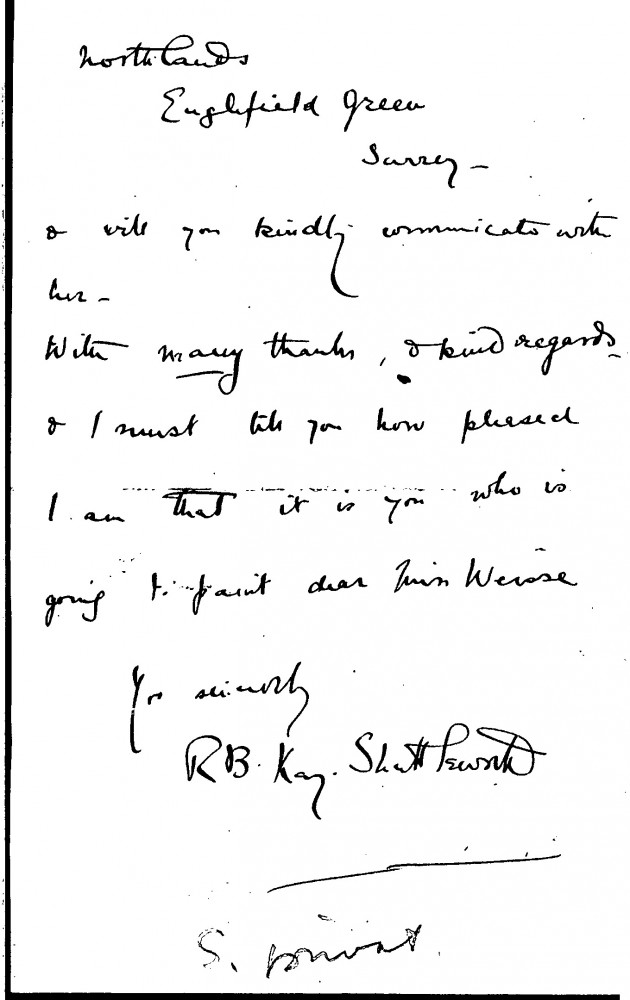 Northlands
Englefield Green
Surrey –
& will you kindly communicate with
her –
With many thanks, & kind regards
& I must tell you how pleased
I am that it is you who is
going to paint dear Miss Weisse
Yrs sincerely
R B. Kay-Shuttleworth
S.